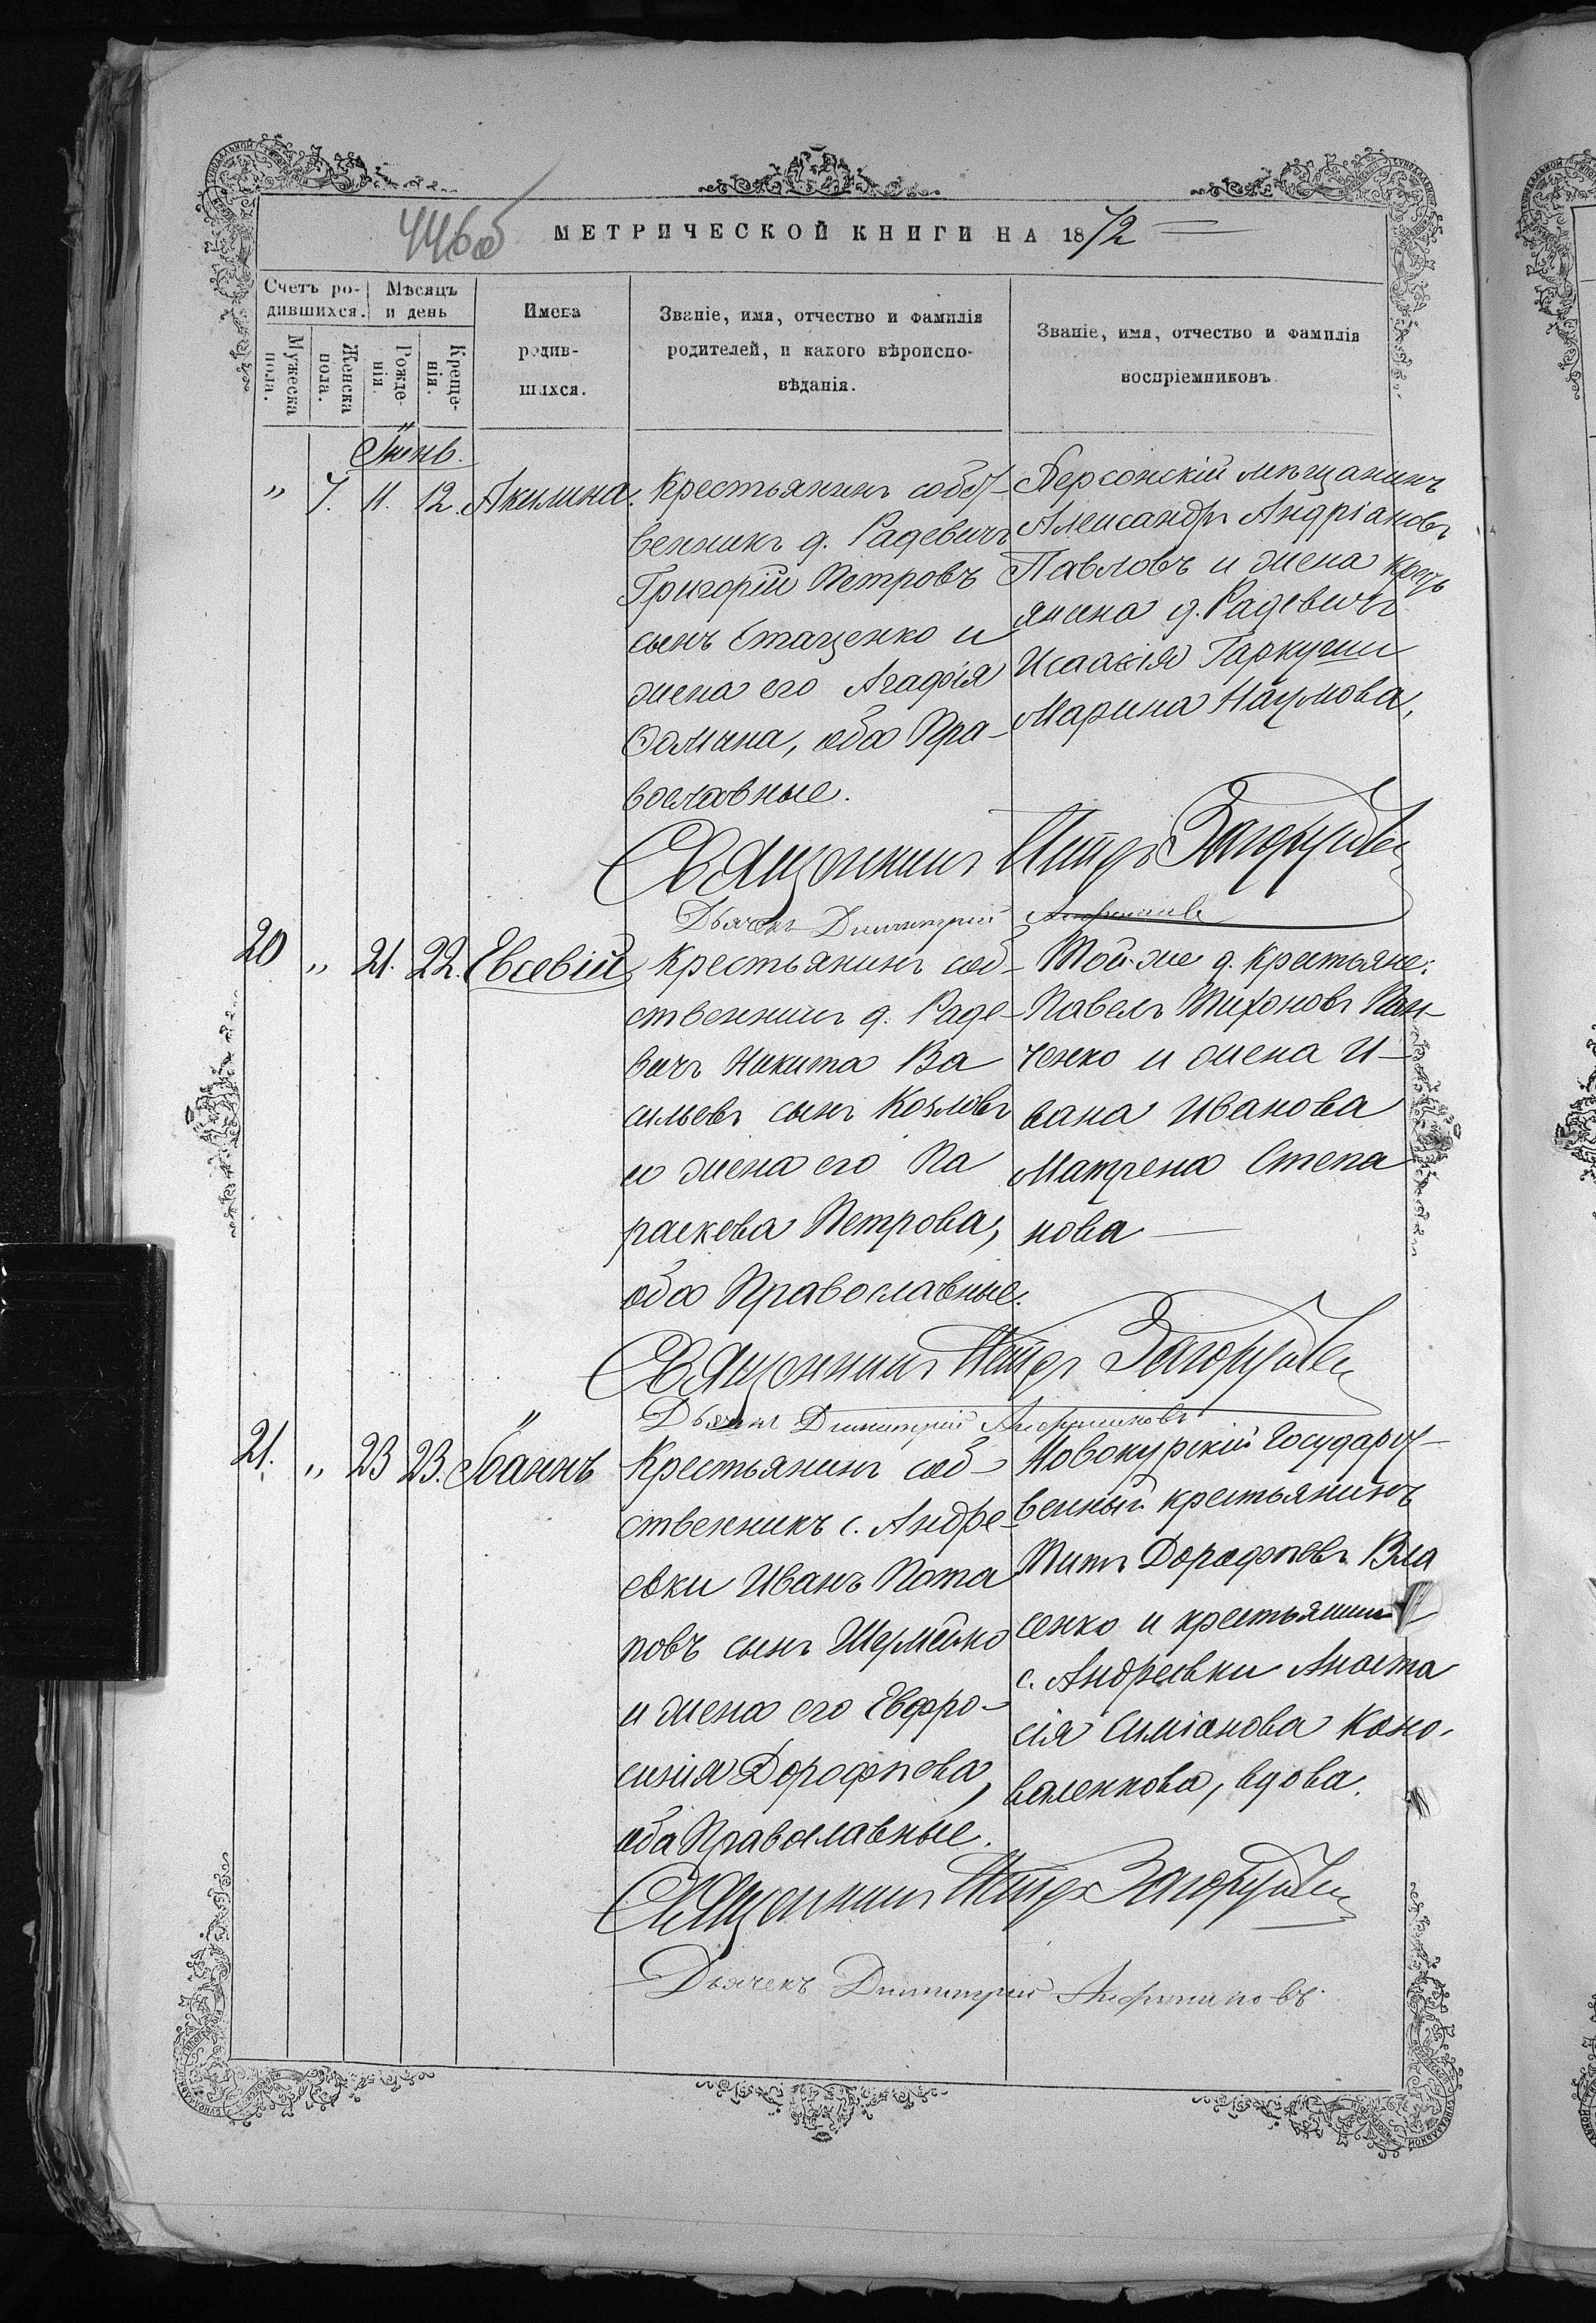 446об
МЕТРИЧЕСКОЙ КНИГИ НА 1872
Счетъ ро-
дившихся.
Мѣсяцъ
и день
Имена
родив-
шихся.
Званіе, имя, отчество и фамилія
родителей, и какого вѣроиспо-
вѣданія.
Званіе, имя, отчество и фамилія
воспріемниковъ
Мужеска
пола.
Женска
пола.
Рожде-
нія.
Креще-
нія.
Іюнь.
" 7. 11. 12. Акилина.
Крестьянинъ собст-
венникъ д. Радевичъ
Григорій Петровъ
сынъ Стаценко и
жена его Агафія
Фомина, оба Пра-
вославные.
Херсонскій мѣщанинъ
Александръ Андріановъ
Павловъ и жена крест
янина д. Радевичъ
Исаакія Гаркуши
Марина Наумова.
Священникъ Петръ
Дьячекъ Димитрій
20 " 21. 22. Евсевій
Крестьянинъ соб-
ственникъ д. Раде-
вичъ Никита Ва
сильевъ сынъ Козловъ
и жена его Па
раскева Петрова,
оба Православные.
Той-же д. крестьяне:
Павелъ Тихоновъ Пан-
ченко и жена И-
вана Иванова
Матрена Степа
нова
Священникъ Петръ
Дьячекъ Димитрій
21. " 23 23. Іоаннъ
Крестьянинъ соб-
ственникъ с. Андре-
евки Иванъ Пота
повъ сынъ Шермейко
и жена его Евфро-
синія Дорофѣева,
оба Православные.
Новокурскій Государст-
венный крестьянинъ
Титъ Дорофѣевъ Вла
сенко и крестьянин
с. Андреевки Анаста
сія Симіонова Коно-
валенкова, вдова.
Священникъ Петръ
Дьячекъ Димитрій